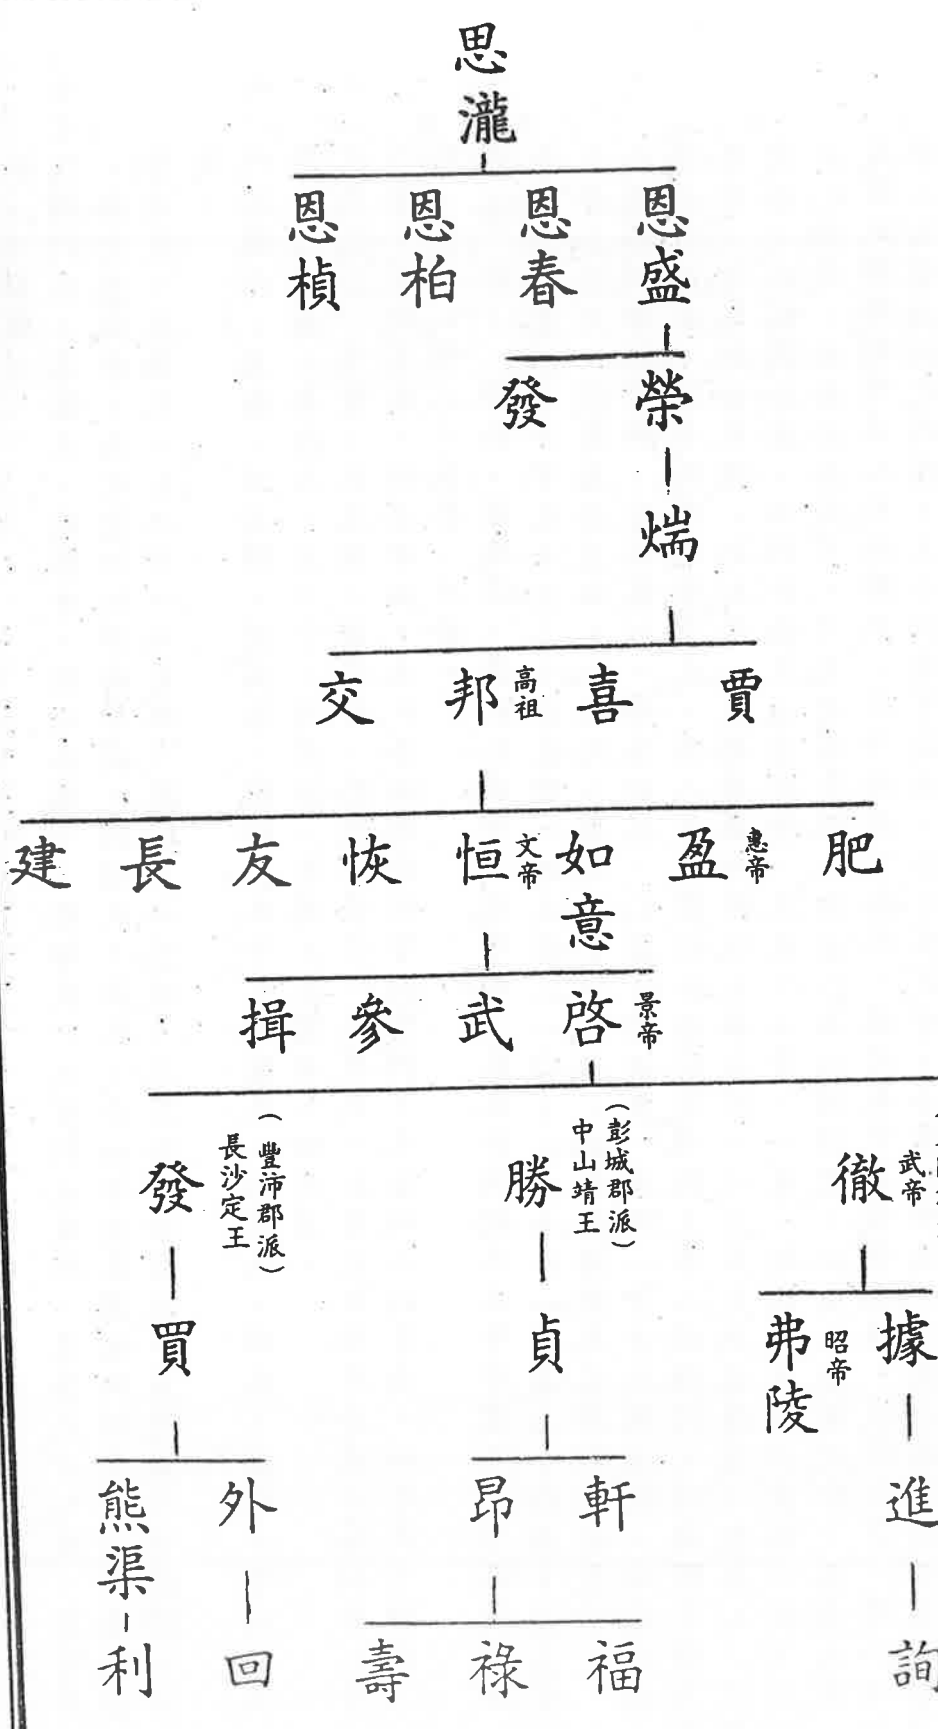 思瀧
恩盛
恩春
恩柏
恩楨
榮
發
煓
賈
喜
邦 高祖
交
肥
盈 惠帝
如意
恒 文帝
恢
友
長
建
啓 景帝
武
參
揖
徹 武帝
勝 (彭城郡派) 中山靖王
發 (豐沛郡派) 長沙定王
據
弗陵 昭帝
貞
買
進
軒
昂
外
熊渠
詢
福
祿
壽
回
利